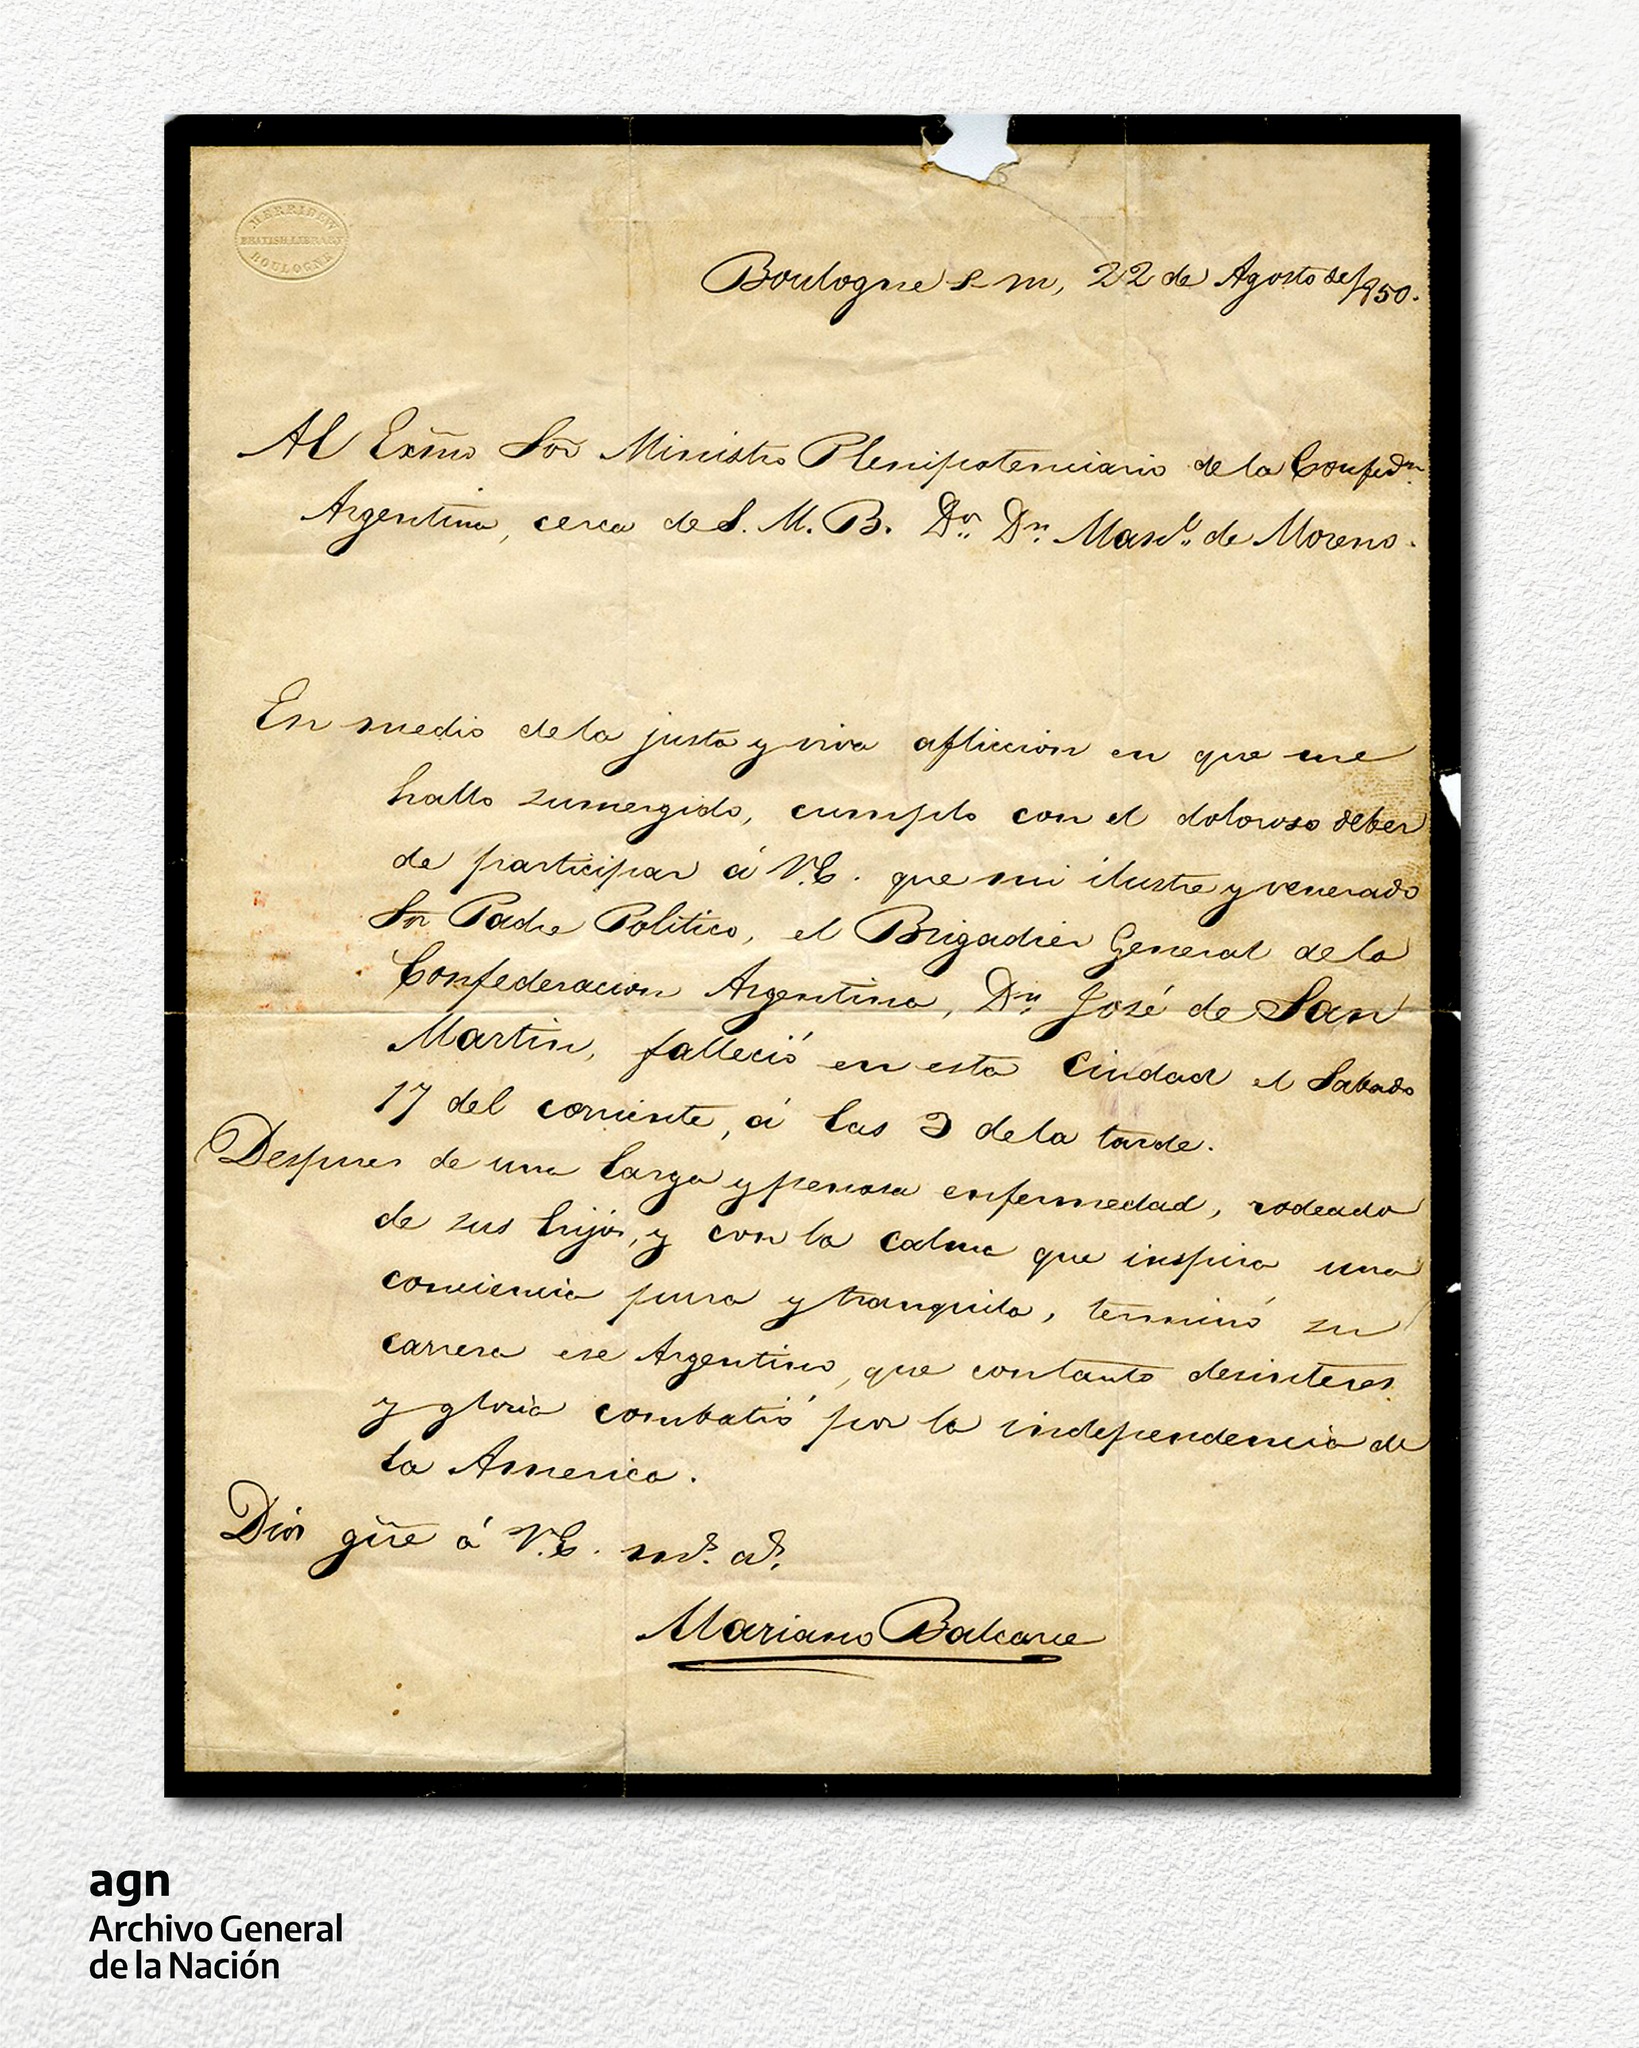 MERRIDEW
BRITISH LIBRARY
BOULOGNE
Boulogne s m, 22 de Agosto de 1850.
Al Exm̃o Sõr Ministro Plenipotenciario de la Confedn.
Argentina, cerca de S. M. B. Dor. Dn. Manl. de Moreno.
En medio de la justa y viva afliccion en que me
hallo sumergido, cumplo con el doloroso deber
de participar á V.E. que mi ilustre y venerado
Sor Padre Politico, el Brigadier General de la
Confederacion Argentina, Dn. José de San
Martin, falleció en esta Ciudad el Sabado
17 del corriente, á las 3 de la tarde.
Despues de una larga y penosa enfermedad, rodeado
de sus hijos, y con la calma que inspira una
conciencia pura y tranquila, terminó su
carrera ese Argentino, que con tanto desinteres
y gloria combatió por la independencia de
la America.
Dios gũe á V.E. ms. as.
Mariano Balcarce
agn
Archivo General
de la Nación